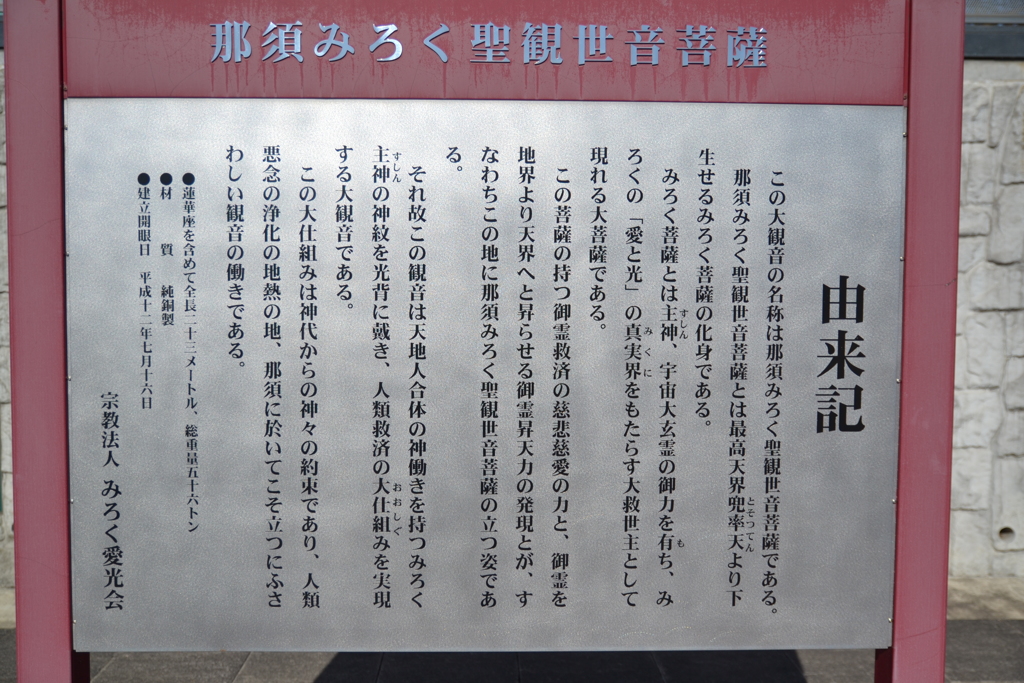 那須みろく聖観世音菩薩
由来記
この大観音の名称は那須みろく聖観世音菩薩である。
那須みろく聖観世音菩薩とは最高天界兜率天より下
とそつてん
生せるみろく菩薩の化身である。
みろく菩薩とは主神、宇宙大玄霊の御力を有ち、み
すしん
も
ろくの「愛と光」の真実界をもたらす大救世主として
みくに
現れる大菩薩である。
この菩薩の持つ御霊救済の慈悲慈愛の力と、御霊を
地界より天界へと昇らせる御霊昇天力の発現とが、す
なわちこの地に那須みろく聖観世音菩薩の立つ姿であ
る。
それ故この観音は天地人合体の神働きを持つみろく
主神の神紋を光背に戴き、人類救済の大仕組みを実現
すしん
おおしぐ
する大観音である。
この大仕組みは神代からの神々の約束であり、人類
悪念の浄化の地熱の地、那須に於いてこそ立つにふさ
わしい観音の働きである。
●蓮華座を含めて全長二十三メートル、総重量五十六トン
●材　質　純銅製
●建立開眼日　平成十二年七月十六日
宗教法人 みろく愛光会